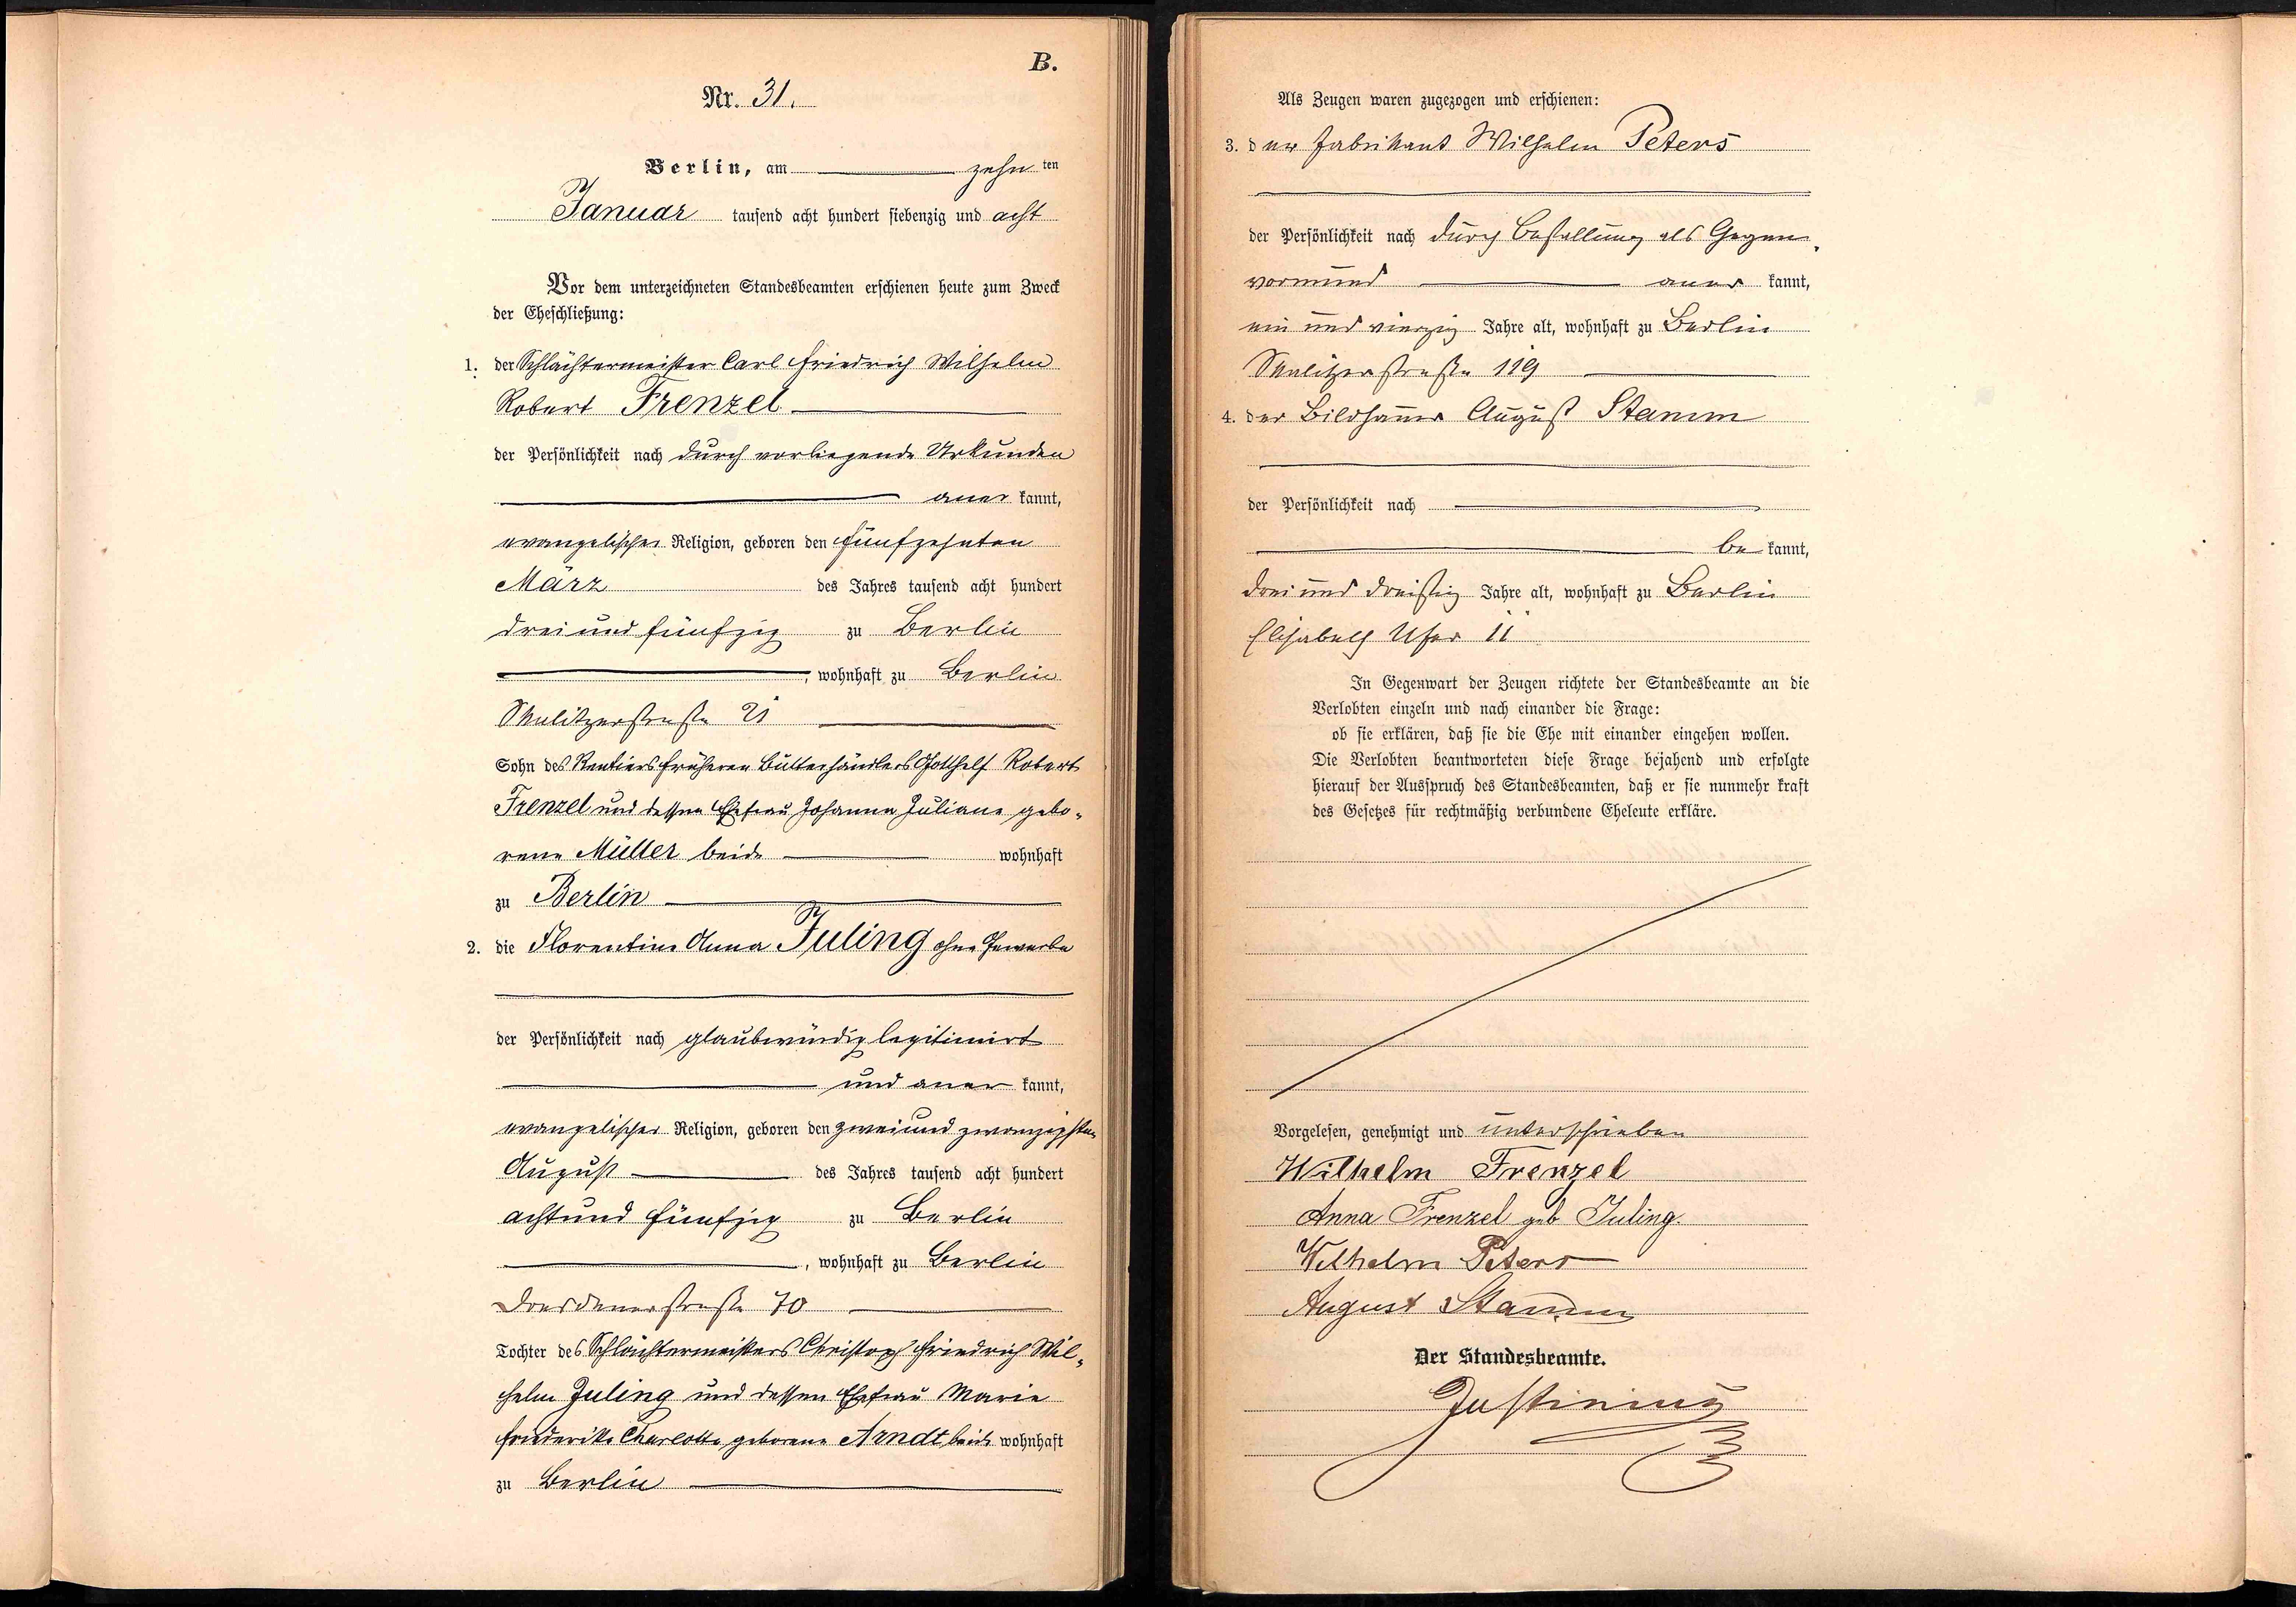 B.
Nr. 31.
Berlin, am zehn ten
Januar tausend acht hundert siebenzig und acht
Vor dem unterzeichneten Standesbeamten erschienen heute zum Zweck
der Eheschließung:
1. der Schlächtermeister Carl Friedrich Wilhelm
Robert Frenzel
der Persönlichkeit nach durch vorliegende Urkunden
aner kannt,
evangelischer Religion, geboren den fünfzehnten
März des Jahres tausend acht hundert
drei und fünfzig zu Berlin
, wohnhaft zu Berlin
Skalitzerstraße 21
Sohn des Rentiers früheren Butterhändlers Gotthelf Robert
Frenzel und dessen Ehefrau Johanna Juliane gebo-
rene Müller beide wohnhaft
zu Berlin
2. die Florentine Anna Juling ohne Gewerbe
der Persönlichkeit nach glaubwürdig legitimirt
und aner kannt,
evangelischer Religion, geboren den zwei und zwanzigsten
August des Jahres tausend acht hundert
acht und fünfzig zu Berlin
, wohnhaft zu Berlin
Dresdenerstraße 70
Tochter des Schlächtermeisters Christoph Friedrich Wil-
helm Juling und dessen Ehefrau Marie
Friederike Charlotte geborene Arndt beide wohnhaft
zu Berlin
Als Zeugen waren zugezogen und erschienen:
3. der Fabrikant Wilhelm Peters
der Persönlichkeit nach durch Bestallung als Gegen-
vormund aner kannt,
ein und vierzig Jahre alt, wohnhaft zu Berlin
Skalitzerstraße 119
4. der Bildhauer August Stamm
der Persönlichkeit nach
be kannt,
drei und dreißig Jahre alt, wohnhaft zu Berlin
Elisabeth Ufer 11
In Gegenwart der Zeugen richtete der Standesbeamte an die
Verlobten einzeln und nach einander die Frage:
ob sie erklären, daß sie die Ehe mit einander eingehen wollen.
Die Verlobten beantworteten diese Frage bejahend und erfolgte
hierauf der Ausspruch des Standesbeamten, daß er sie nunmehr kraft
des Gesetzes für rechtmäßig verbundene Eheleute erkläre.
Vorgelesen, genehmigt und unterschrieben
Wilhelm Frenzel
Anna Frenzel geb Juling.
Wilhelm Peters
August Stamm
Der Standesbeamte.